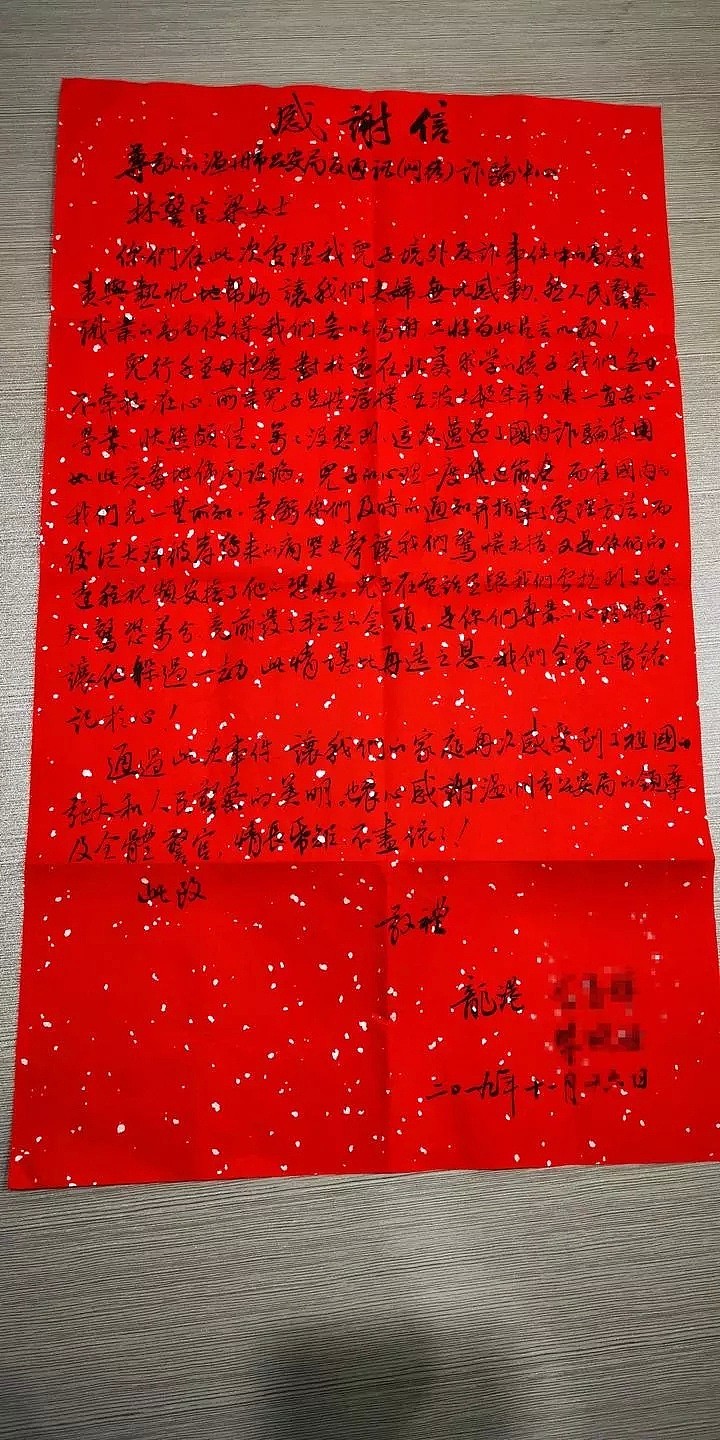 感謝信
尊敬的温州市公安局反通訊(網络)诈騙中心
林警官 梁女士
你們在此次處理我兒子境外反詐事件中的高度負
責與熱忱地幫助 讓我們夫婦無比感動 人民警察
職業的高尚使得我們無以為謝 特為此信言以致!
兒行千里母担憂 對於遠在北美求学的孩子 我們無日
不牽掛在心 所幸兒子生性淳樸 在波士頓年 以來一直安心
學業 狀態頗佳。萬万沒想到 這次遭遇了國内诈騙集團
如此惡毒地佈局設陷。兒子的心理一度幾近崩潰 而在國内的
我們竟一無所知。幸虧你們及時的通知并指導了處理方法 而
後從大洋彼岸傳來的痛哭失聲讓我們驚慌失措 又是你們的
遠程視頻安撫了他的恐懼。兒子在電話里跟我們
驚恐萬分 竟萌發了輕生的念頭。是你們專業的心理輔導
讓他躲過一劫 此情堪比再造之恩 我們全家定當銘
記於心!
通過此次事件 讓我們的家庭再次感受到了祖國的
強大和人民警察的英明。衷心感謝温州市公安局的領導
及全體警官,情長紙短 不盡
此致
敬禮
龍港
二〇一九年十一月十六日